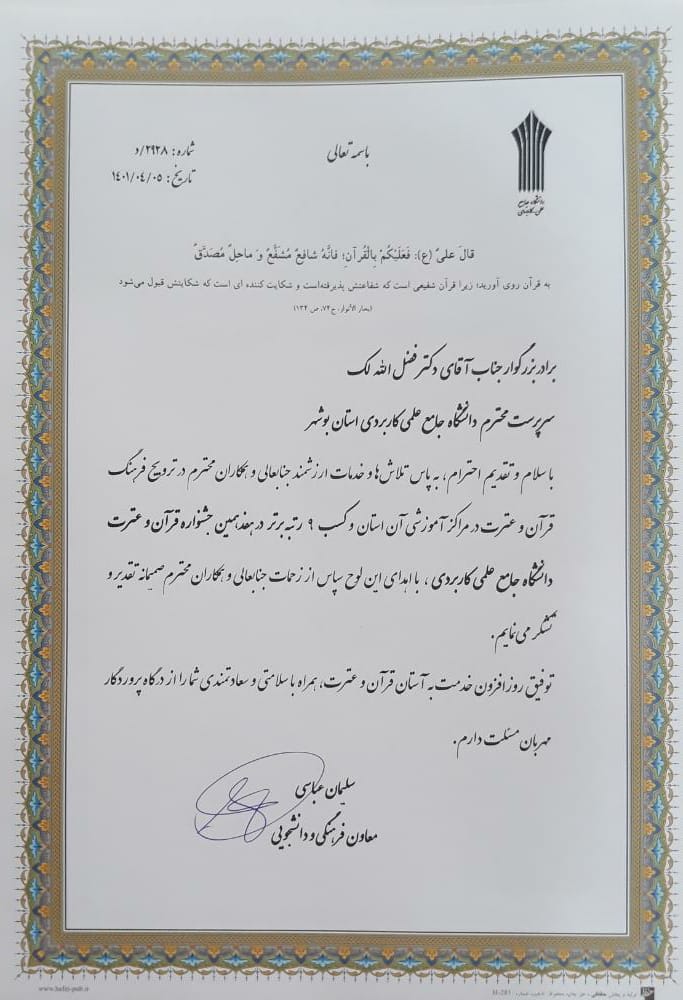 باسمه تعالی
شماره: ۲۹۲۸/د
تاریخ: ۱۴۰۱/۰۴/۰۵
دانشگاه جامع
علمی کاربردی
قالَ علیٌ (ع): فَعَلَیْکُمْ بِالْقُرآنِ؛ فَانَّهُ شافِعٌ مُشَفَّعٌ وَ ماحِلٌ مُصَدَّقٌ
به قرآن روی آورید؛ زیرا قرآن شفیعی است که شفاعتش پذیرفته‌است و شکایت کننده ای است که شکایتش قبول می‌شود
(بحار الأنوار، ج۷۴، ص ۱۳۴)
برادر بزرگوار جناب آقای دکتر فضل الله لک
سرپرست محترم دانشگاه جامع علمی کاربردی استان بوشهر
با سلام و تقدیم احترام، به پاس تلاش‌ها و خدمات ارزشمند جنابعالی و همکاران محترم در ترویج فرهنگ
قرآن و عترت در مراکز آموزشی آن استان و کسب ۹ رتبه برتر در هفدهمین جشنواره قرآن و عترت
دانشگاه جامع علمی کاربردی، با اهدای این لوح سپاس از زحمات جنابعالی و همکاران محترم صمیمانه تقدیر و
تشکر می‌نمایم.
توفیق روز افزون خدمت به آستان قرآن و عترت، همراه با سلامتی و سعادتمندی شما را از درگاه پروردگار
مهربان مسئلت دارم.
سلیمان عباسی
معاون فرهنگی و دانشجویی
www.hadid-pub.ir